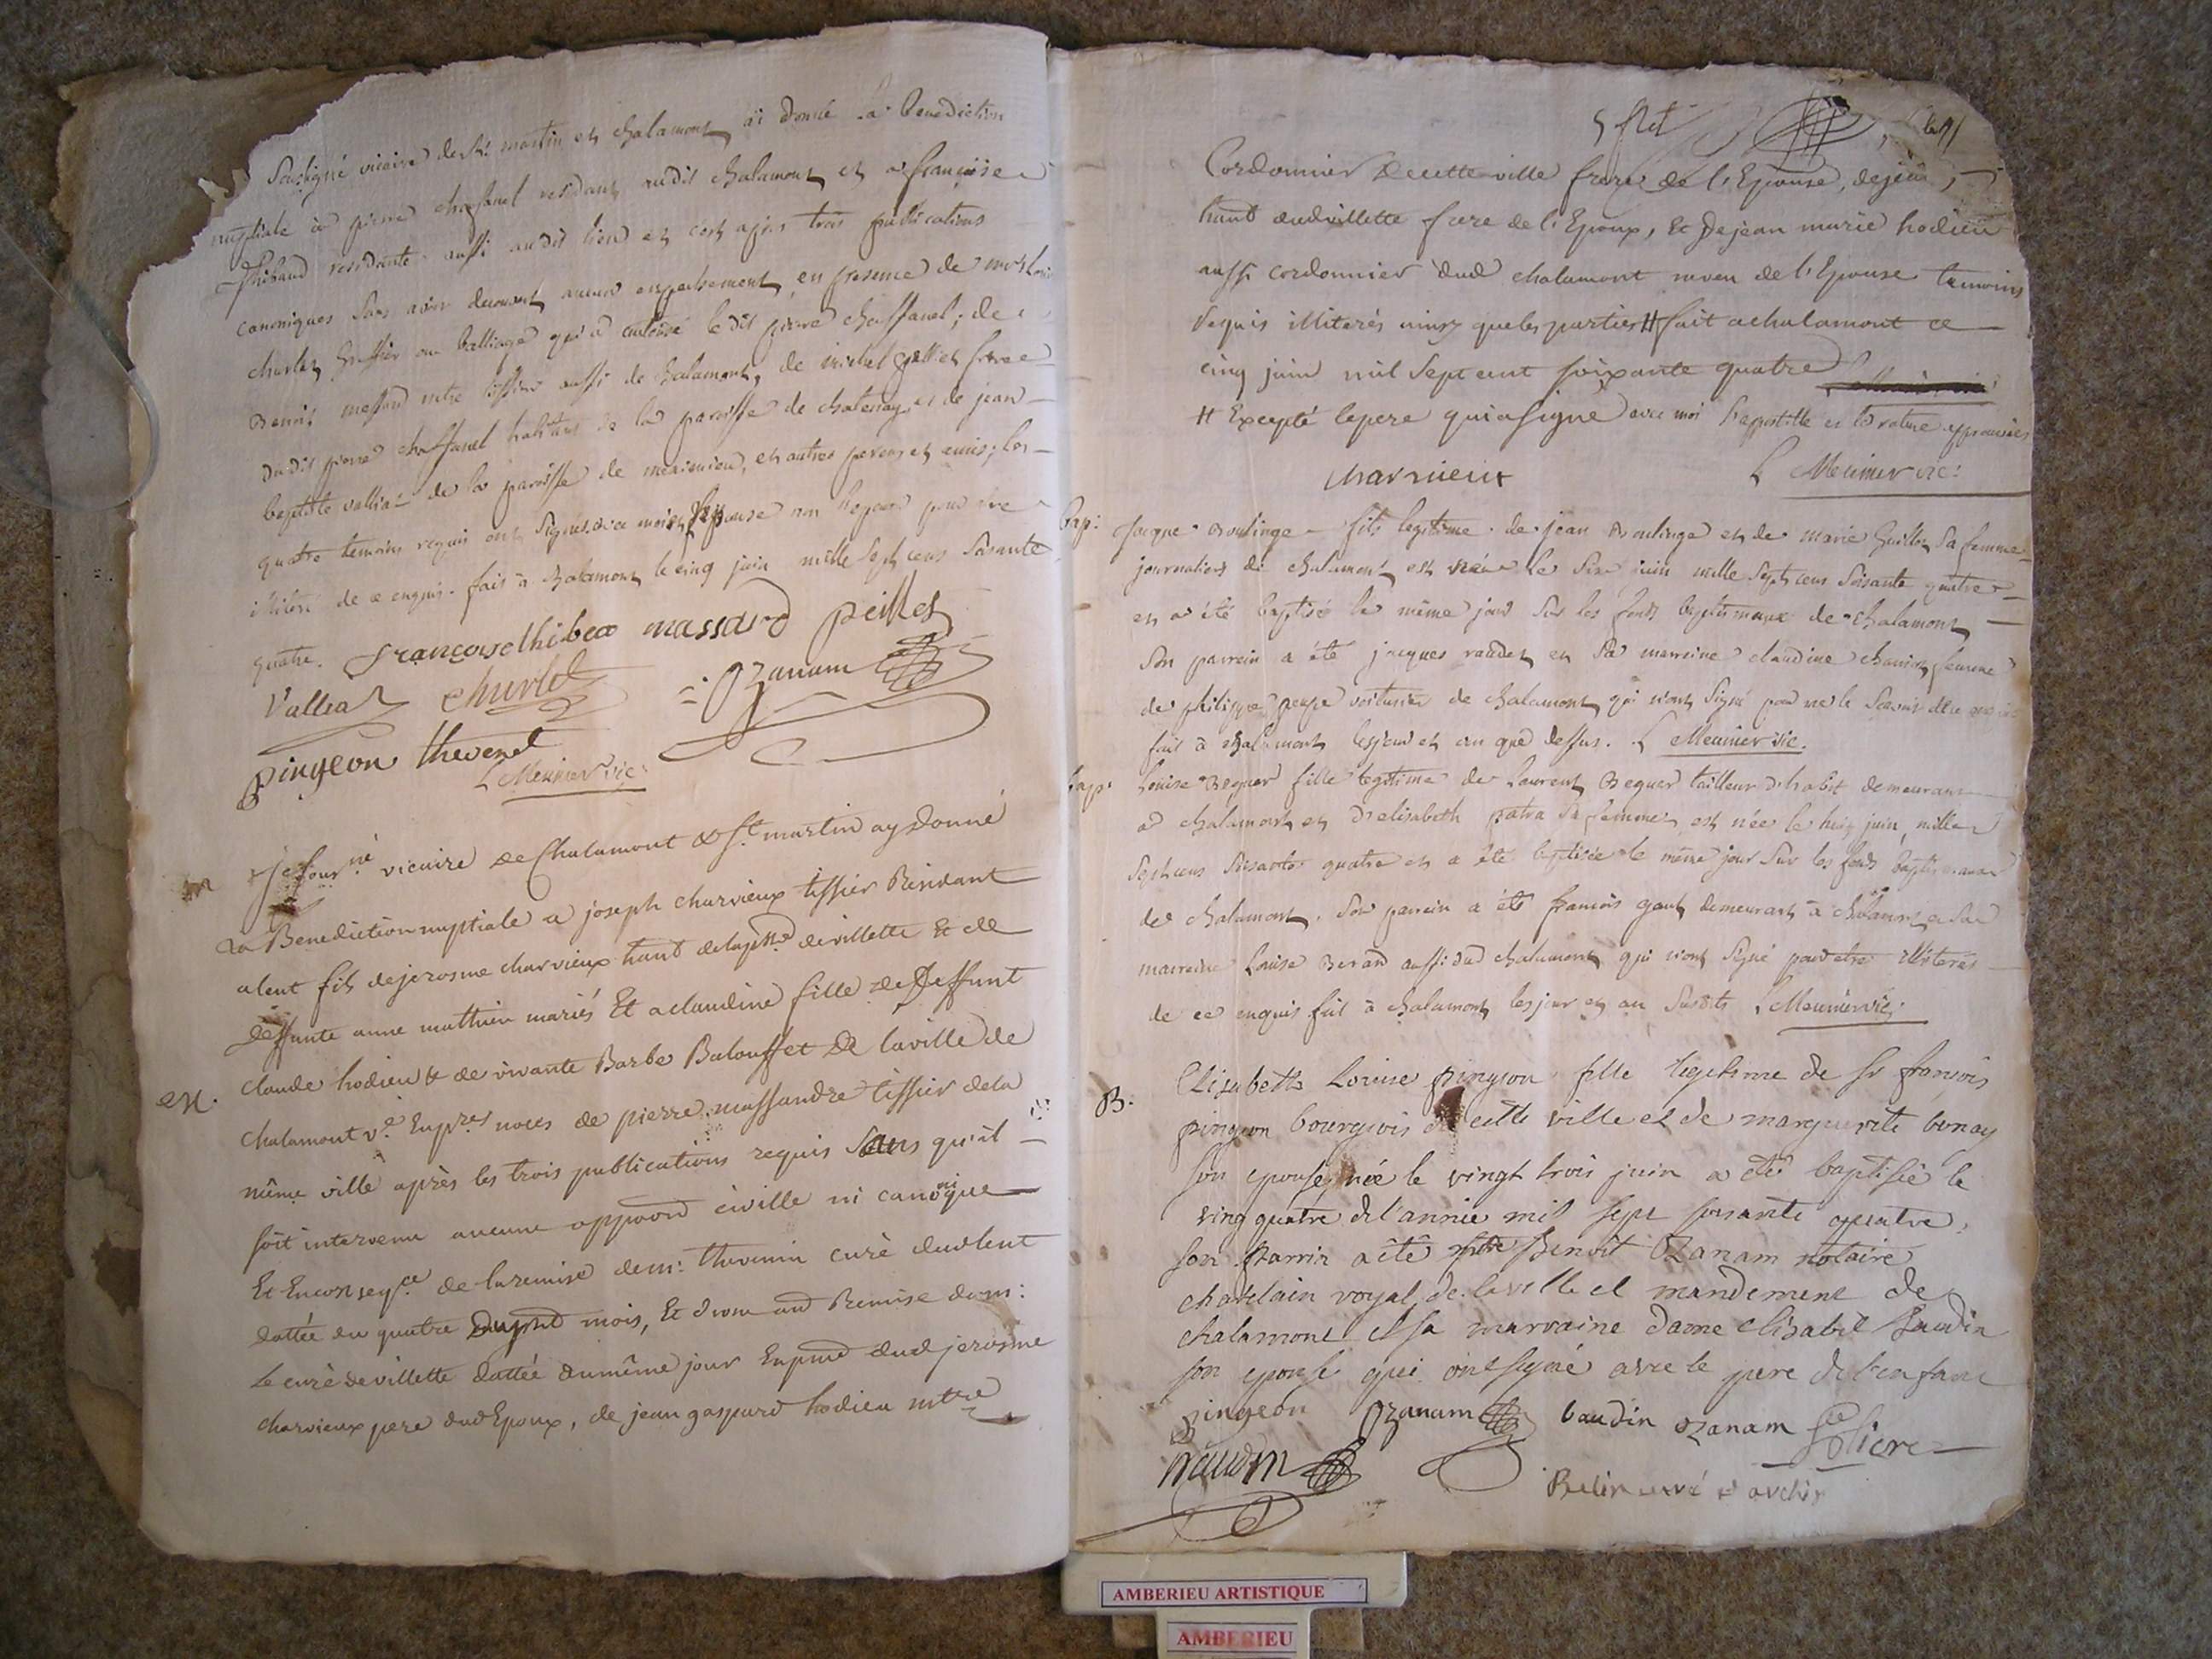 Soussigné vicaire de st martin et chalamont ai donné la benediction
nuptiale à pierre chaffanel residant audit chalamont et a françoise
Thibaud residante aussi audit lieu et c'est apres trois publications
canoniques sans avoir decouvert aucun empechement en presence de
charlet greffier au balliage qui a autorisé le dit pierre chaffanel; de
Benoit aussi de chalamont, de michel frere
dudit pierre chaffanel habitant de la paroisse de chatenay et de jean
baptiste vallia de la paroisse de meximieu, et autres parens et amis; les
quatre temoins requis ont signés avec moi et l'epouse non l'epoux pour etre
illiteré de ce enquis. fait à chalamont le cinq juin mille sept cens soisante
quatre. francoise thibeo massard peillet
Vallia charlet Ozanam
pingeon thevenet
L Meunier vic:
Je sous.né vicaire de Chalamont & St martin ay donné
La Benediction nuptiale a joseph charvieux tissier Residant
aleut fils de jerosme charvieux hant de la psse de villette Et de
deffunte anne mathieu mariés Et a claudine fille de Deffunt
M. Claude hodieu & de vivante Barbe Balouffet de la ville de
chalamont ve En pres noces de pierre massandre tissier de la
même ville après les trois publications requis Sans qu'il
soit intervenu aucune opposon civille ni canonique
Et En conseqce de la remise de m: thevenin curé dud leut
dattée du quatre du pnt mois, Et d'une aud Remise de m:
Le curé de villette dattée du même jour En pnce dud jerosme
charvieux pere dud Epoux, de jean gaspard hodieu mtre
Cordonnier de cette ville frere de l'Epouse, de
hant dud villette frere de l'Epoux, Et de jean marie hodieu
aussi cordonnier dud chalamont neveu de l'Epouse temoins
Requis illiterés ainsy que les parties # fait a chalamont ce
cinq juin mil sept cent soixante quatre
# Excepté le pere qui a signé avec moi l'appostille et la rature approuvées
charvieux L Meunier vic:
Bap: Jacque Boulinge fils legitime de jean Boulinge et de marie Guillot sa femme
journaliers de chalamont est né le six juin mille sept cens soisante quatre
et a été baptisé le même jour sur les fonds baptismaux de chalamont
son parrein a été jacques et sa marreine claudine femme
de philippe voiturier de chalamont qui n'ont signé pour ne le scavoir
fait à chalamont les jour et an que dessus. L Meunier vic.
bap: Louise Beguer fille legitime de Laurent Beguer tailleur d'habit demeurant
a chalamont et d'elisabeth patra sa femme est née le huit juin mille
sept cens soisante quatre et a été baptisée le même jour sur les fonds baptismaux
de chalamont. son parrein a été francois demeurant à chalamont et sa
marreine Louise Berard aussi dud chalamont qui n'ont signé pour etre illiterés
de ce enquis fait à chalamont les jour et an susdits L Meunier vic:
B: Elisabeth Louise pingeon fille legitime de sr fransois
pingeon bourgeois de cette ville et de marguerite bonay
son epouse, née le vingt trois juin a été baptisée le
ving quatre de l'année mil sept soisante quatre,
son parrin a été Benoit Ozanam notaire
chatelain royal de la ville et mandement de
chalamont et sa marraine dame elisabet baudin
son epouse qui ont signé avec le pere de l'enfant
pingeon Ozanam baudin ozanam
baudin
Belin curé et archip
AMBERIEU ARTISTIQUE
AMBERIEU